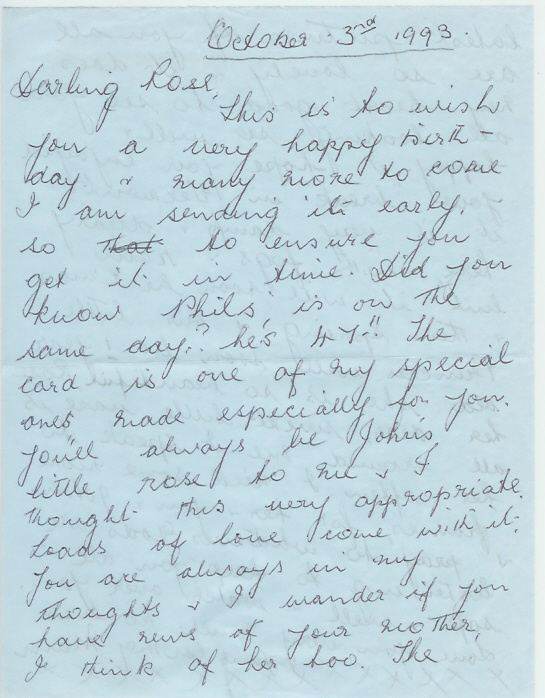 October 3rd 1993.
Darling Rose,
This is to wish
you a very happy Birth-
day & many more to come
I am sending it early,
so That to ensure you
get it in time. Did you
know Phils', is on the
same day? he's 47!! The
card is one of my special
ones made especially for you.
you'll always be John's
little rose to me & I
thought this very appropriate.
Loads of love come with it.
You are always in my
thoughts & I wander if you
have news of your mother,
I think of her too. The